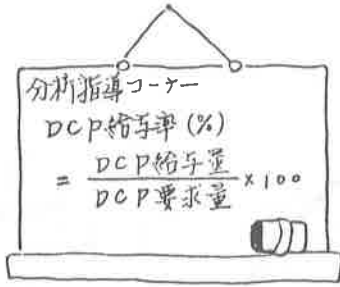 分析指導コーナー
DCP給与率(%)
= DCP給与量
DCP要求量 ×100